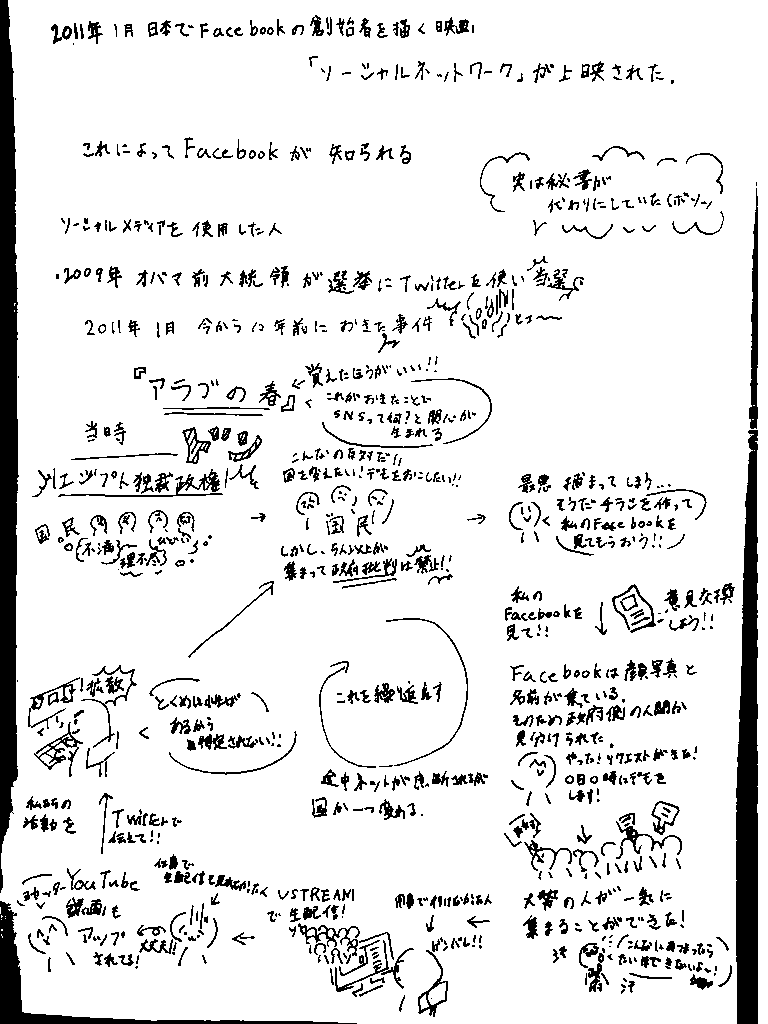 2011年1月 日本でFacebookの創始者を描く映画
「ソーシャルネットワーク」が上映された。
これによってFacebookが 知られる
実は秘書が
代わりにしていた(ボソッ)
ソーシャルメディアを使用した人
・2009年 オバマ前大統領が選挙にTwitterを使い当選
2011年1月 今から12年前におきた事件
『アラブの春』
←覚えたほうがいい!!
これがおきたことで
SNSって何?と関心が
生まれる
当時
エジプト独裁政権
国民
不満
理不尽
→
こんなの反対だ!!
国を変えたい!デモをおこしたい!!
国民
しかし、5人以上が
集まって政府批判は禁止!!
→
最悪 捕まってしまう…
そうだチラシを作って
私のFacebookを
見てもらおう!!
私の
Facebookを
見て!!
意見交換
しよう!!
Facebookは顔写真と
名前が乗っている。
そのため政府側の人間が
見付けられた。
やった!リクエストがきた!
0日0時にデモを
します!
大勢の人が一気に
集まることができた!
こんなにあつまったら
たいほできないよ〜!
汗
汗
←
ガンバレ!!
USTREAM
で生配信!
←
大丈夫!!
YouTube
録画も
アップ
されてる!
私たちの
活動を
Twitterで
伝えて!!
拡散
とくめい
あるから
特定されない!!
これを繰り返えす
途中ネットが
国が一つ変わる。